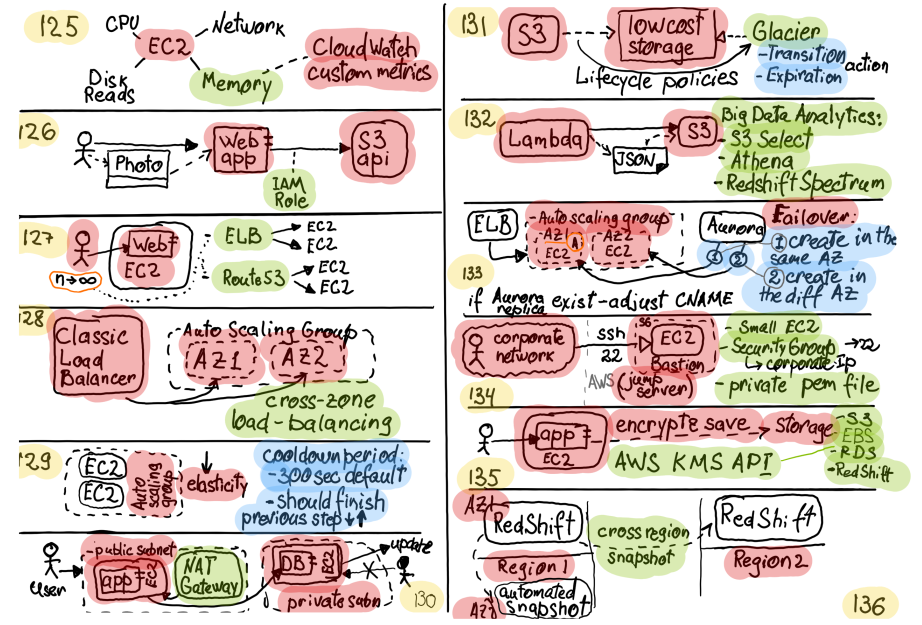 125
CPU
Network
EC2
Disk
Reads
Memory
CloudWatch
custom metrics
126
Photo
Web
app
S3
api
IAM
Role
127
n→∞
Web
EC2
ELB
EC2
EC2
Route53
EC2
EC2
128
Classic
Load
Balancer
-Auto Scaling Group
AZ1
AZ2
cross-zone
load-balancing
129
EC2
EC2
Auto
scaling
group
elasticity
cooldown period:
-300 sec default
-should finish
previous step ↓↑
user
-public subnet
app
EC2
NAT
Gateway
DB
EC2
update
private subn
130
131
S3
low cost
storage
Glacier
-Transition
-Expiration
action
Lifecycle policies
132
Lambda
JSON
S3
Big Data Analytics:
-S3 Select
-Athena
-Redshift Spectrum
133
ELB
-Auto scaling group
AZ1
A
EC2
AZ2
EC2
Aurora
1
2
Failover:
1 create in the
same AZ
2 create in
the diff AZ
if Aurora
replica exist-adjust CNAME
134
corporate
network
ssh
22
AWS
SG
EC2
Bastion
(jump
server)
-Small EC2
-Security Group →22
↳ corporate Ip
-private pem file
135
app
EC2
encrypt & save
storage
AWS KMS API
-S3
EBS
-RDS
-RedShift
AZ1
RedShift
Region 1
automated
snapshot
AZ2
cross region
snapshot
RedShift
Region 2
136